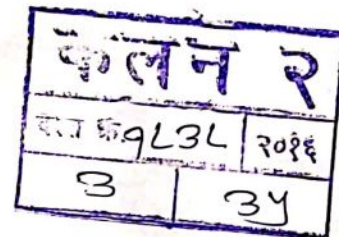 कलन २
दस्त क्र. १८३८ २०१६
३ ३५